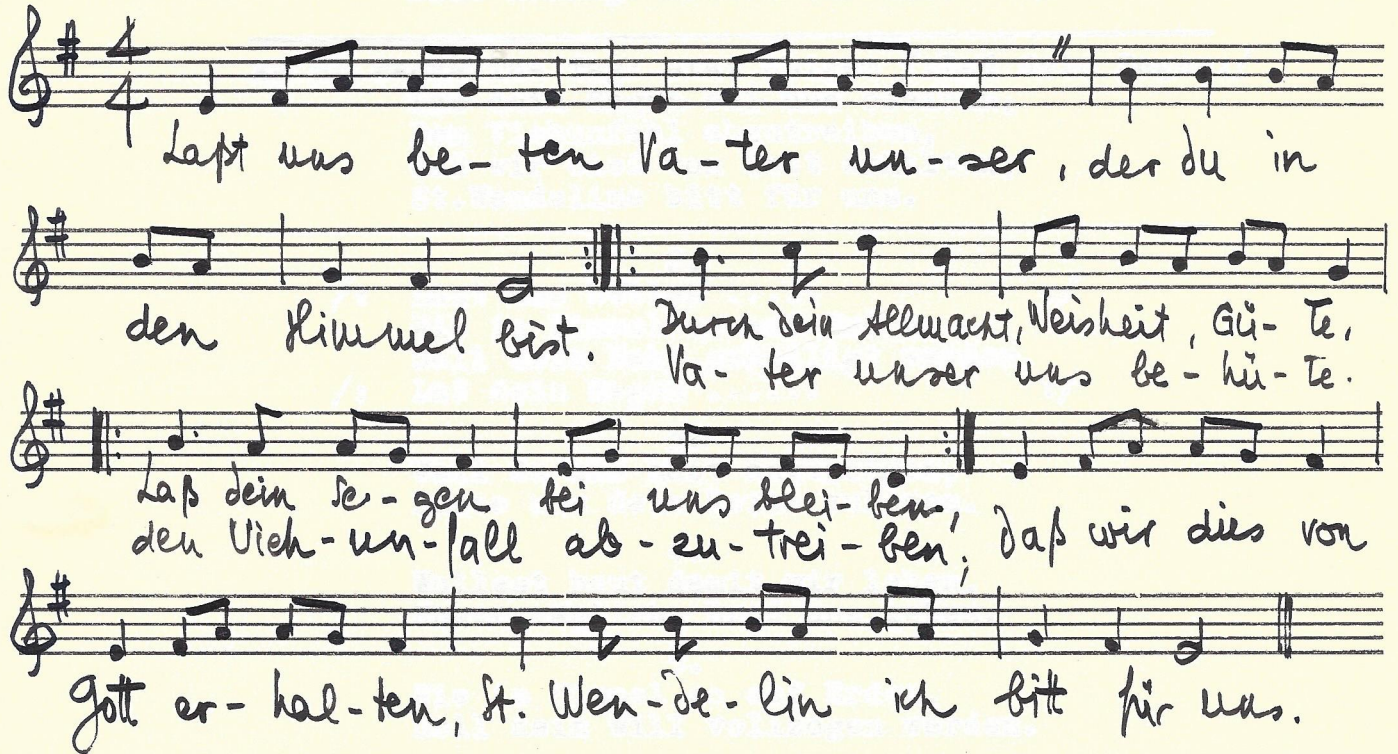 4
4
Laßt uns be- ten Va-ter un-ser, der du in
den Himmel bist. Durch dein Allmacht, Weisheit, Gü- te,
Va- ter unser uns be-hü-te.
Laß dein Se-gen bei uns blei-ben,
den Vieh-un-fall ab-zu-trei-ben, daß wir dies von
Gott er-hal-ten, St. Wen-de-lin ich bitt für uns.